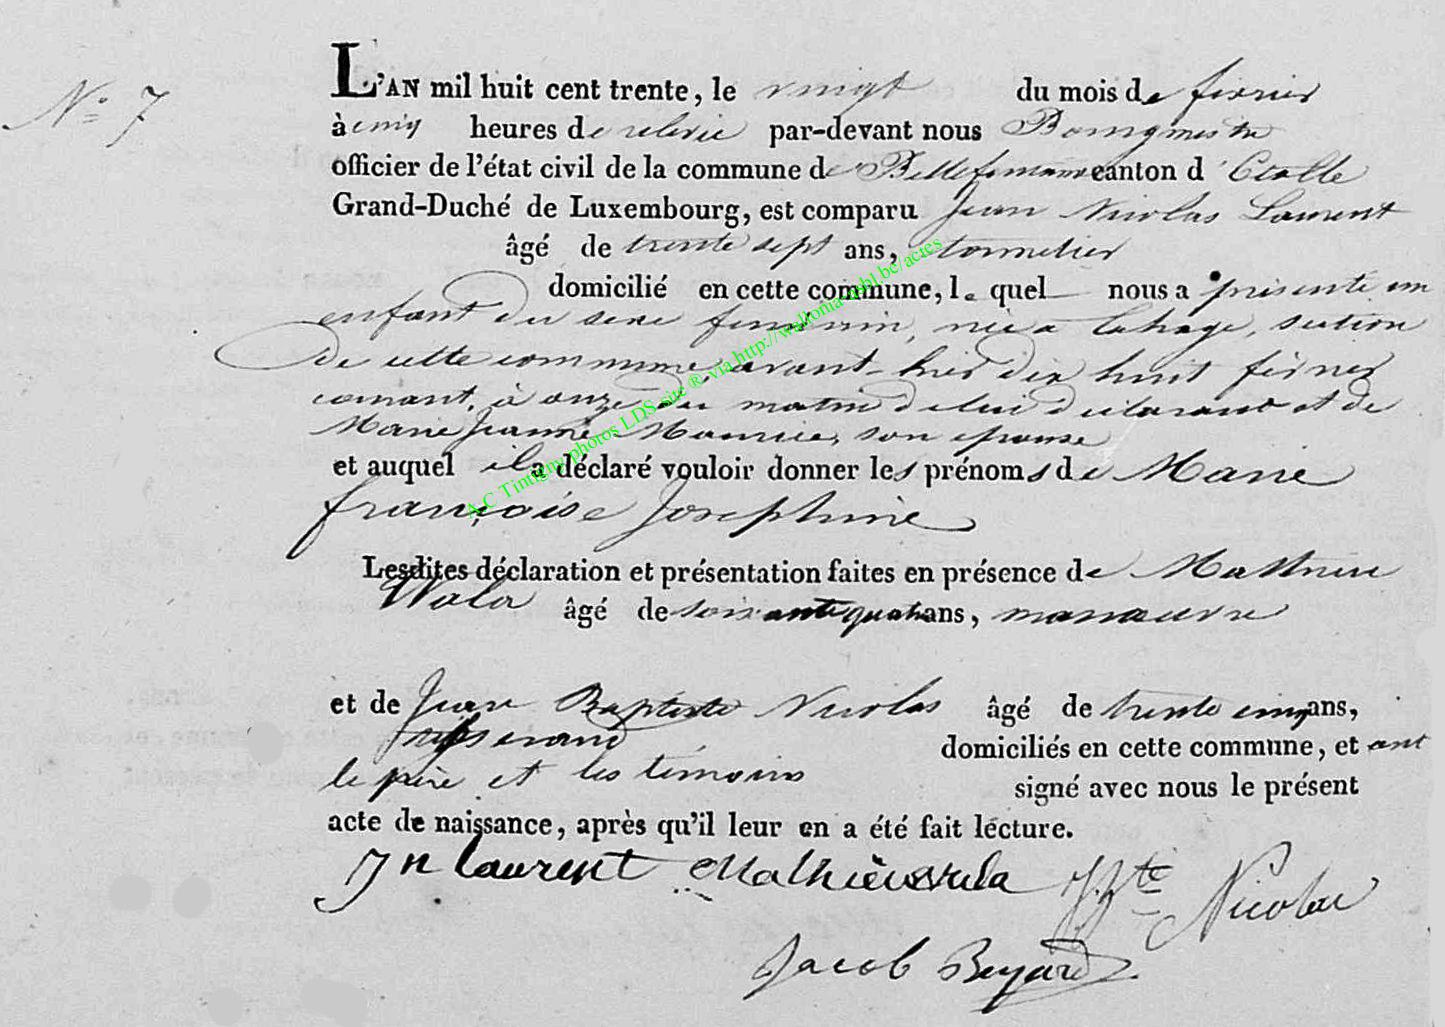 N° 7
L'AN mil huit cent trente, le vingt du mois de février
à cinq heures de relevée par-devant nous Bourgmestre
officier de l'état civil de la commune de Bellefontaine canton d'Etalle
Grand-Duché de Luxembourg, est comparu Jean Nicolas Laurent
âgé de trente sept ans, tonnelier
domicilié en cette commune, lequel nous a présenté un
enfant du sexe féminin, née a Lahage, section
de cette commune, avant-hier dix huit février
courant, à onze du matin de lui déclarant et de
Marie Jeanne Maurice, son épouse
et auquel il a déclaré vouloir donner les prénoms de Marie
françoise Josephine
Lesdites déclaration et présentation faites en présence de Mathieu
Wala âgé de soixante quatre ans, manoeuvre
et de Jean Baptiste Nicolas âgé de trente cinq ans,
domiciliés en cette commune, et ont
le père et les témoins signé avec nous le présent
acte de naissance, après qu'il leur en a été fait lecture.
J n laurent Mathieu wala J. Bte Nicolas
Jacob Beyard
A.C Tintigny photos LDS site ® via http://wallonia-asbl.be/actes